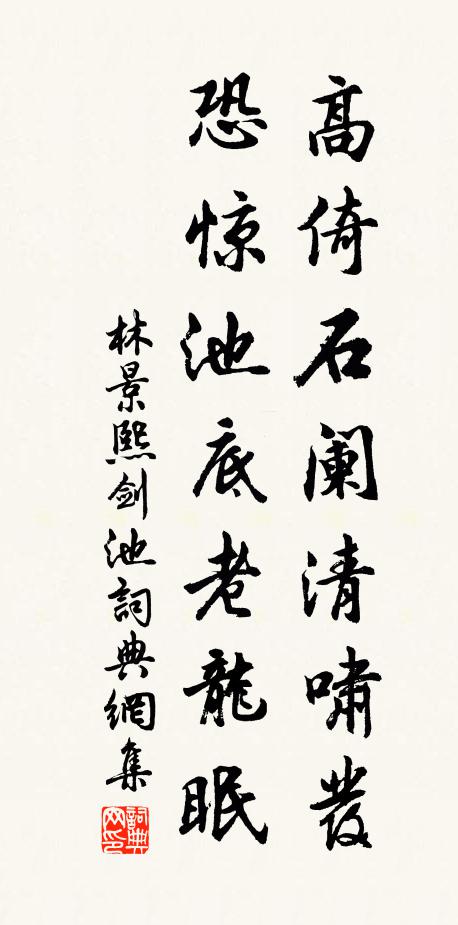 高倚石阑清啸发
恐惊池底老龙眠
林景熙剑池詞典網集
詞典网印